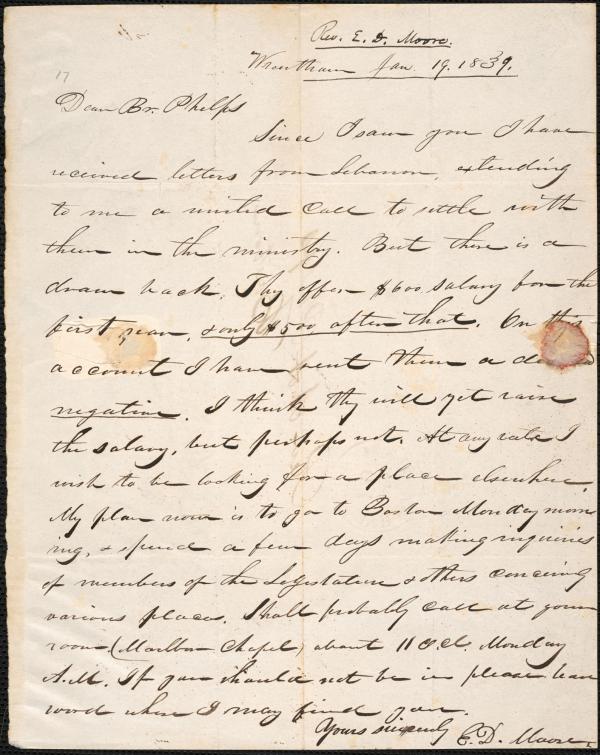 17
Rev. E. D. Moore.
Wrentham Jan. 19. 1839.
Dear Br. Phelps
Since I saw you I have
received letters from Lebanon, extending
to me a united call to settle with
them in the ministry. But there is a
drawback. Thy offer $600 salary for the
first year, & only $500 after that. On this
account I have sent them a
negative. I think thy will yet raise
the salary, but perhaps not. At any rate I
wish to be looking for a place elsewhere.
My plan now is to go to Boston Monday morn
ing, & spend a few days making inquiries
of members of the Legislature & others concering
various places. Shall probably call at your
room (Marlboro Chapel) about 11 O.Cl. Monday
A.M. If you should not be in please leave
word where I may find you.
Yours sincerely E. D. Moore.